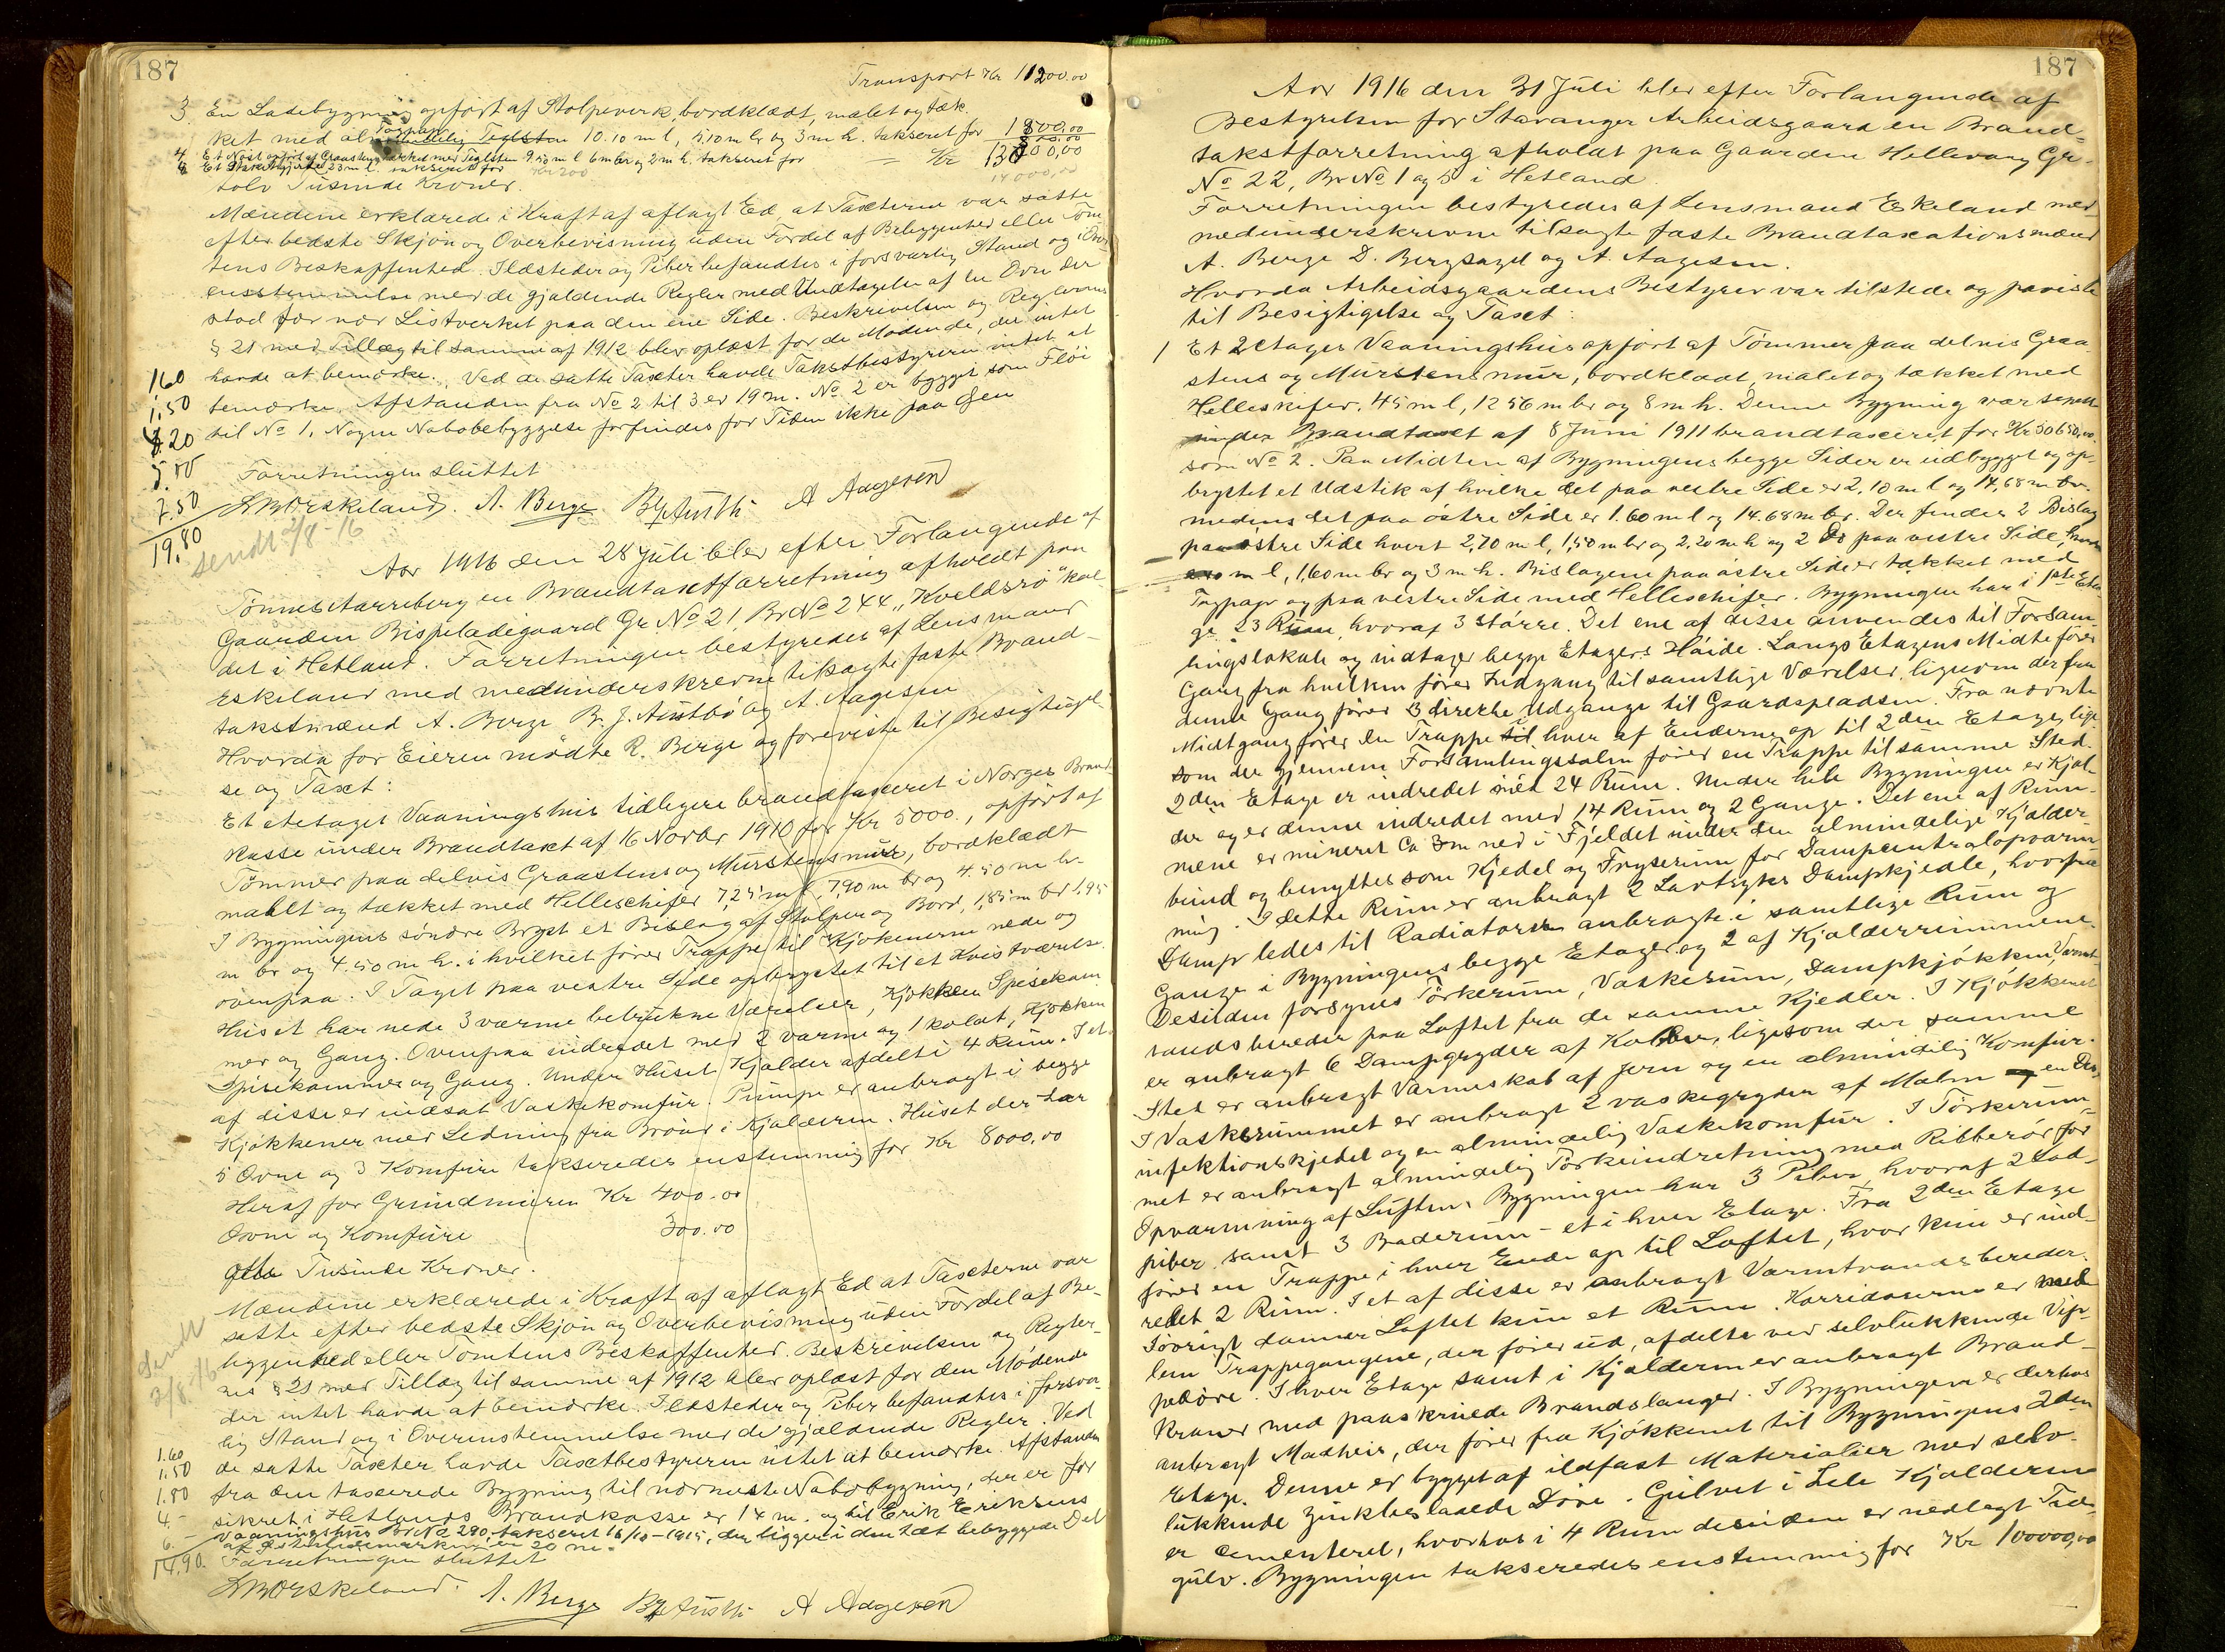 187
Transport Kr 11200.00
3. En Ladebygning opført af Stolpeverk, bordklædt, malet og tæk
ket med Tagpap 10.10 m l, 5.10 m br og 3 m h. takseret for 1800.00
4. Et Nøst opført af Graasten, tækket med Teglsten 9.50 m l 6 m br og 2 m h. takseret for
Et Stakitgjerde 23 m l. takseret for Kr 200
Kr
14000,00
tolv Tusinde Kroner.
Mændene erklærede i Kraft af aflagt Ed, at Taxterne var satte
efter bedste Skjøn og Overbevisning uden Fordel af Bebyggenhed eller Tom
tens Beskaffenhed. Ildsteder og Piber befandtes i forsvarlig Stand og i Over
ensstemmelse med de gjældende Regler med Undtagelse af en Ovn der
stod for nær Listverket paa den ene Side. Beskrivelsen og Reglernes
§ 21 med Tillæg til samme af 1912 blev oplæst for de Mødende, der intet
havde at bemærke. Ved de satte Taxter havde Takstbestyreren intet at
bemærke. Afstanden fra No 2 til 3 er 19 m. No 2 er bygget som Fløi
til No 1. Nogen Nabobebyggelse forfindes for Tiden ikke paa Øen
Forretningen sluttet
1,60
1,50
8.20
5.00
7.50
19,80
L M Orskeland. A. Berge. B J Austbø A Aagesen
sendt 2/8-16
Aar 1916 den 28 Juli blev efter Forlangende af
Tønnes Aarreberg en Brandtaxtforretning afholdt paa
Gaarden Bispeladegaard Gr. No 21 Br No 244 "Kveldsro" kal
det i Hetland. Forretningen bestyredes af Lensmand
Eskeland med medunderskrevne tilsagte faste Brand-
takstmænd A. Berge B. J. Austbø og A. Aagesen
Hvorda for Eieren mødte R. Berge og foreviste til Besigtigel
se og Taxt:
Et etetages Vaaningshus tidligere brandtaxeret i Norges Brand
kasse under Brandtaxt af 16 Novbr 1910 for Kr 5000., opført af
Tømmer paa delvis Graastens og Murstensmur, bordklædt
malet og tækket med Helleschifer 7,25 m l, 7,90 m br og 4.50 m h.
I Bygningens søndre Bryst et Bislag af Stolper og Bord, 1,85 m br 1,95
m br og 4.50 m h. i hvilket fører Trappe til Kjøkkenerne nede og
ovenpaa. I Taget paa vestre Side opbrystet til et Kvistværelse.
Huset har nede 3 varme beboede Værelser, Kjøkken Spisekam
mer og Gang. Ovenpaa indredet med 2 varme og 1 koldt, Kjøkken
Spisekammer og Gang. Under Huset Kjælder afdelt i 4 Rum. I et
af disse er indsat Vaskekomfur. Pumpe er anbragt i begge
Kjøkkener med Ledning fra Brønd i Kjælderen. Huset der har
5 Ovne og 3 Komfure takseredes enstemmig for Kr 8000,00
Heraf for Grundmuren Kr 400.00
Ovne og Komfure 300.00
otte Tusinde Kroner.
Mændene erklærede i Kraft af aflagt Ed at Taxterne var
satte efter bedste Skjøn og Overbevisning uden Fordel af Be-
byggenhed eller Tomtens Beskaffenhed. Beskrivelsen og Regler-
nes § 21 med Tillæg til samme af 1912 blev oplæst for den Mødende
der intet havde at bemærke. Ildsteder og Piber befandtes i forsvar-
lig Stand og i Overensstemmelse med de gjældende Regler. Ved
de satte Taxter havde Taxtbestyreren intet at bemærke. Afstanden
fra den taxerede Bygning til nærmeste Nabobygning, der er for
sikret i Hetlands Brandkasse er 14 m. og til Erik Eriksens
Vaaningshus Br No 290, takseret 16/10-1915, der ligger i den tæt bebyggede Del
er 20 m.
Forretningen sluttet
sendt
2/8-16
1.60
1.50
1.80
4.-
6.-
14.90.
L M Orskeland. A. Berge B J Austbø A Aagesen
187
Aar 1916 den 31 Juli blev efter Forlangende af
Bestyrelsen for Stavanger Arbeidsgaard en Brand-
takstforretning afholdt paa Gaarden Hillevaag Gr.
No 22, Br No 1 og 5 i Hetland.
Forretningen bestyredes af Lensmand Eskeland med
medunderskrevne tilsagte faste Brandtaxationsmænd
A. Berge D. Bergsagel og A. Aagesen.
Hvorda Arbeidsgaardens Bestyrer var tilstede og paaviste
til Besigtigelse og Taxt:
1 Et 2 etages Vaaningshus opført af Tømmer paa delvis Graa
stens og Murstensmur, bordklædt, malet og tækket med
Helleskifer. 45 m l, 12 56 m br og 8 m h. Denne Bygning var
under Brandtaxt af 8 Juni 1911 brandtaxeret for Kr 50650,00.
som No 2. Paa Midten af Bygningens begge Sider er udbygget og op-
brystet et Udstik af hvilke det paa vestre Side er 2,10 m l og 14,68 m br.
medens det paa østre Side er 1.60 m l og 14.68 m br. Der findes 2 Bislag
paa østre Side hvert 2,70 m l, 1,50 m br og 2,20 m h og 2 Do paa vestre Side,
m l, 1,60 m br og 3 m h. Bislagene paa østre Side er tækket med
Tagpap og paa vestre Side med Helleschifer. Bygningen har i 1ste Eta
ge 23 Rum, hvoraf 3 større. Det ene af disse anvendes til Forsam-
lingslokale og indtager begge Etagers Høide. Langs Etagens Midte fører
Gang fra hvilken fører Indgang til samtlige Værelser, ligesom der fra
denne Gang fører 3 direkte Udgange til Gaardspladsen. Fra nævnte
Midtgang fører en Trappe til hver af Enderne op til 2den Etage, lige
som der gjennem Forsamlingssalen fører en Trappe til samme Sted.
2den Etage er indredet med 24 Rum. Under hele Bygningen er Kjæl-
der og er denne indredet med 14 Rum og 2 Gange. Det ene af Rum-
mene er mineret ca 3 m ned i Fjeldet under den almindelige Kjælder-
bund og benyttes som Kjedel og Fyrserum for Dampcentralopvarm
ning. I dette Rum er anbragt 2 Lavtryks Dampkjedle, hvorfra
Damp ledes til Radiatorer anbragte i samtlige Rum og
Gange i Bygningens begge Etager og 2 af Kjælderrummene.
Desuden forsynes Tørkerum, Vaskerum, Dampkjøkken, Varmt-
vandsbereder paa Loftet fra de samme Kjedler. I Kjøkkenet
er anbragt 6 Dampgryder af Kobber, ligesom der samme
Sted er anbragt Varmeskab af Jern og en almindelig Komfur.
I Vaskerummet er anbragt 2 vaskegryder af Malm en Des
infektionskjedel og en almindelig Vaskekomfur. I Tørkerum-
met er anbragt almindelig Tørkeindretning med Ribberør for
Opvarmning af Luften. Bygningen har 3 Piber, hvoraf 2 Lod-
piber, samt 3 Baderum - et i hver Etage. Fra 2den Etage
fører en Trappe i hver Ende op til Loftet, hvor kun er ind-
redet 2 Rum. I et af disse er anbragt Varmtvandsbereder.
Iøvrigt danner Loftet kun et Rum. Korridorerne er mel
lem Trappegangene, der fører ud, afdelte ved selvlukkende Vip-
pedøre. I hver Etage samt i Kjælderen er anbragt Brand-
kraner med paaskruede Brandslanger. I Bygningen er derhos
anbragt Madheis, der fører fra Kjøkkenet til Bygningens 2den
Etage. Denne er bygget af ildfast Materialier med selv-
lukkende zinkbeslaaede Døre. Gulvet i hele Kjælderen
er cementeret, hvorhos i 4 Rum desuden er nedlagt Træ-
gulv. Bygningen takseredes enstemmig for Kr 100000,00